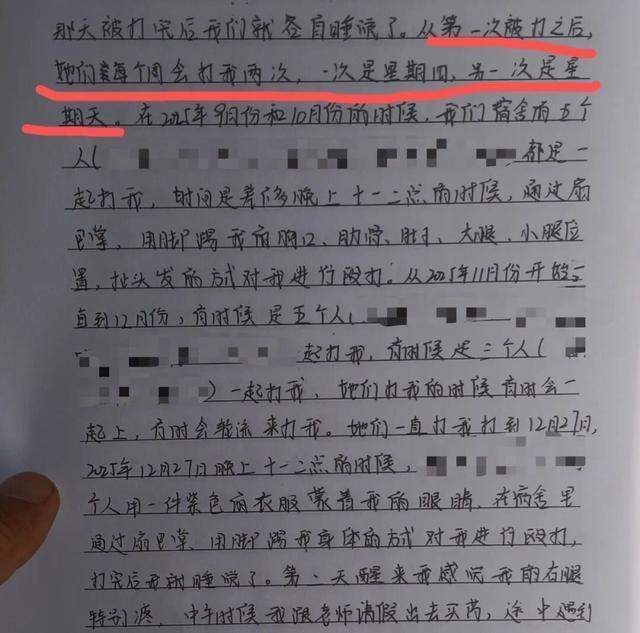 那天被打完后我们就各自睡觉了。从第一次被打之后,
她们每个周会打我两次,一次是星期四,另一次是星
期天。在2025年9月份和10月份的时候,我们宿舍有五个
人( 都是一
起打我,时间是差不多晚上十一二点的时候,通过扇
巴掌,用脚踢我的胸口、肋骨、肚子、大腿、小腿位
置,扯头发的方式对我进行殴打。从2025年11月份开始一
直到12月份,有时候是五个人(
一起打我,有时候是三个人(
)一起打我,她们打我的时候有时会一
起上,有时会轮流来打我。她们一直打我打到12月27日,
2025年12月27日晚上十一二点的时候,
个人用一件紫色的衣服蒙着我的眼睛,在宿舍里
通过扇巴掌、用脚踢我身体的方式对我进行殴打,
打完后我就睡觉了。第二天醒来我感觉我的右腿
特别疼,中午时候我跟老师请假出去买药,途中遇到